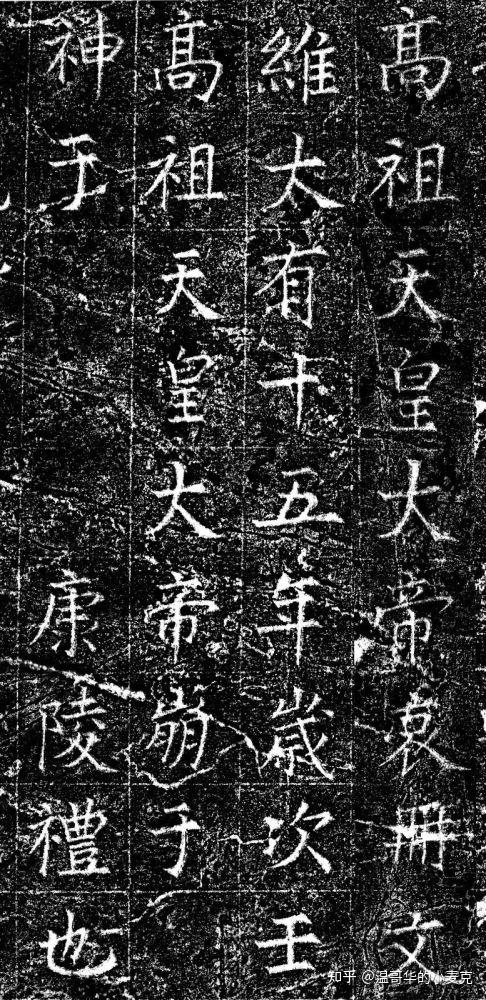 高祖天皇大帝哀冊文
維大有十五年歲次壬
高祖天皇大帝崩于
神于 康陵禮也
知乎 @温哥华的小麦克